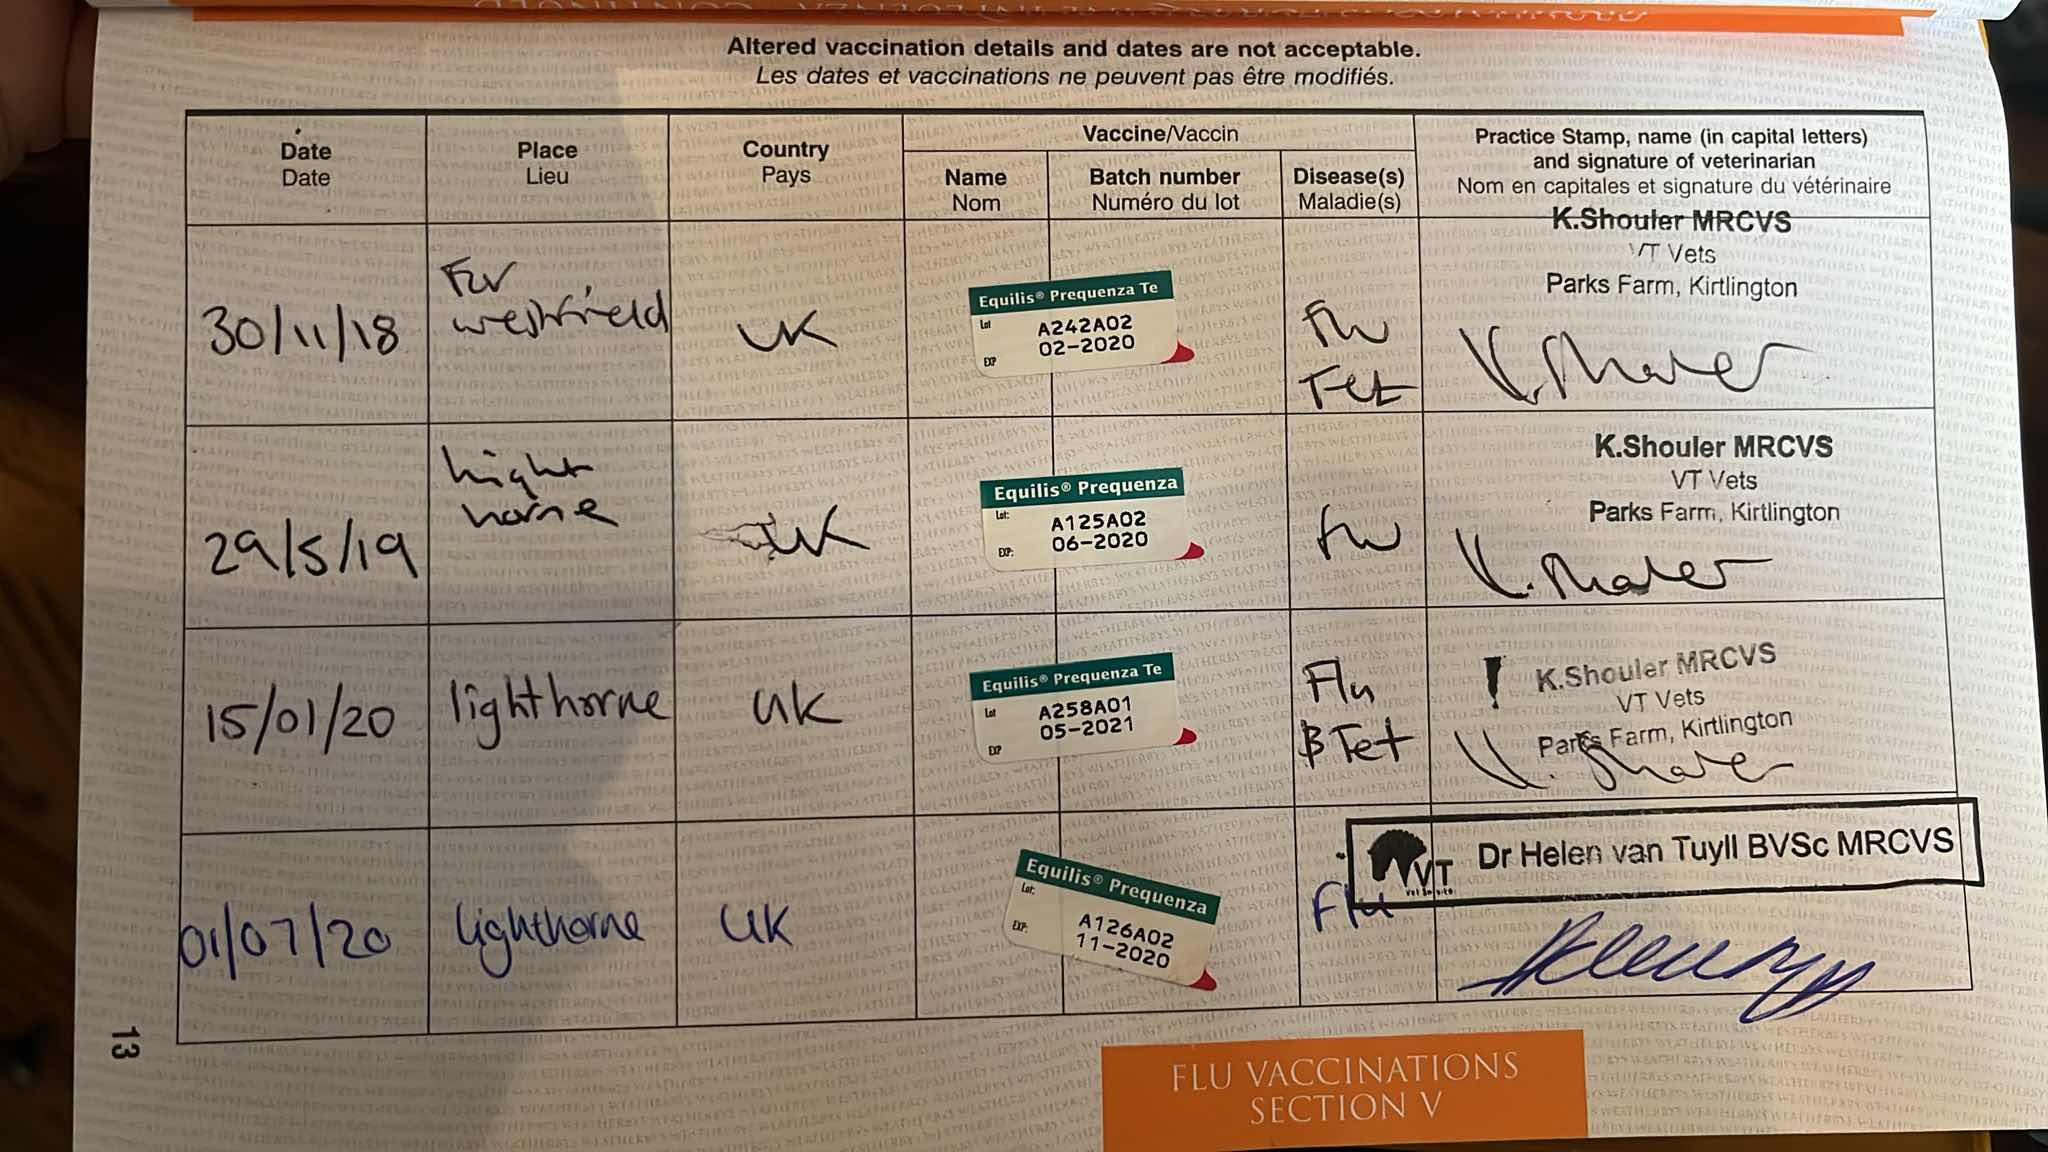 Altered vaccination details and dates are not acceptable.
Les dates et vaccinations ne peuvent pas être modifiés.
Date
Date
Place
Lieu
Country
Pays
Vaccine/Vaccin
Name
Nom
Batch number
Numéro du lot
Disease(s)
Maladie(s)
Practice Stamp, name (in capital letters)
and signature of veterinarian
Nom en capitales et signature du vétérinaire
30/11/18
Far
westfield
UK
Equilis® Prequenza Te
Lot A242A02
EXP 02-2020
Flu
Tet
K.Shouler MRCVS
VT Vets
Parks Farm, Kirtlington
K. Shouler
29/5/19
light
horne
UK
Equilis® Prequenza
Lot: A125A02
EXP: 06-2020
flu
K.Shouler MRCVS
VT Vets
Parks Farm, Kirtlington
K. Shouler
15/01/20
lighthorne
UK
Equilis® Prequenza Te
Lot A258A01
EXP 05-2021
Flu
& Tet
K.Shouler MRCVS
VT Vets
Parks Farm, Kirtlington
K. Shouler
01/07/20
lighthorne
UK
Equilis® Prequenza
Lot: A126A02
EXP: 11-2020
Flu
VT
Dr Helen van Tuyll BVSc MRCVS
13
FLU VACCINATIONS
SECTION V